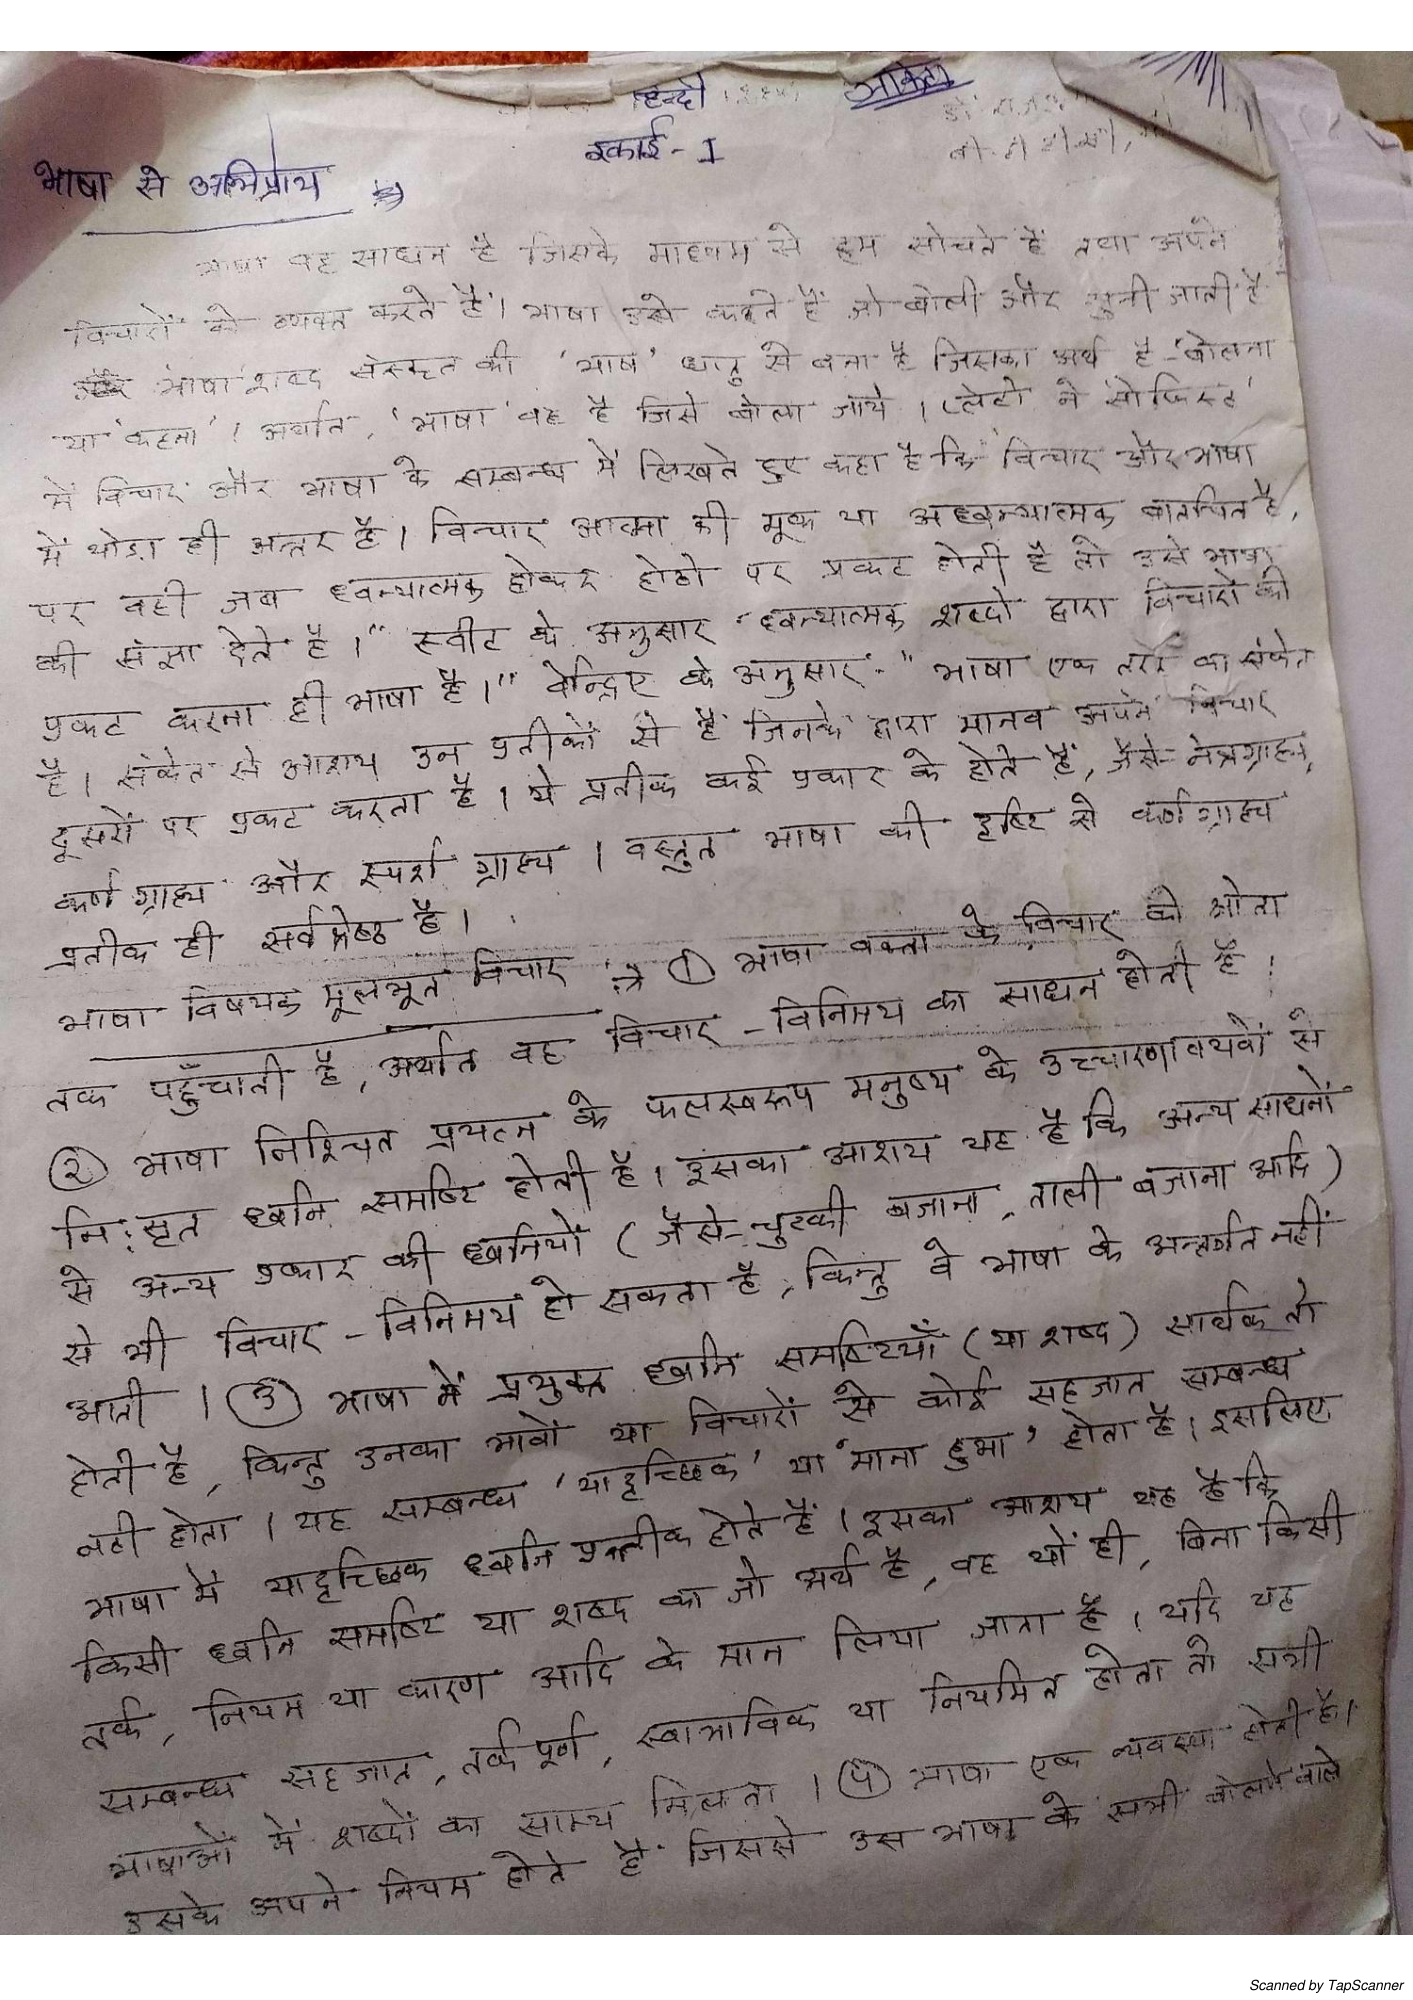 हिन्दी
इकाई - I
भाषा से अभिप्राय
भाषा वह साधन है जिसके माध्यम से हम सोचते हैं तथा अपने
विचारों को व्यक्त करते हैं। भाषा उसे कहते हैं जो बोली और सुनी जाती है
भाषा शब्द संस्कृत की 'भाष' धातु से बना है जिसका अर्थ है - 'बोलना
या 'कहना'। अर्थात, 'भाषा' वह है जिसे बोला जाये। प्लेटो ने 'सोफिस्ट'
में विचार और भाषा के सम्बन्ध में लिखते हुए कहा है कि 'विचार और भाषा
में थोडा ही अन्तर है। विचार आत्मा की मूक या अध्वन्यात्मक बातचित है,
पर वही जब ध्वन्यात्मक होकर होठो पर प्रकट होती है तो उसे भाषा
की संज्ञा देते है।" स्वीट के अनुसार "ध्वन्यात्मक शब्दो द्वारा विचारों को
प्रकट करना ही भाषा है।" वेन्द्रिए के अनुसार - "भाषा एक तरह का संकेत
है। संकेत से आशय उन प्रतीकों से है जिनके द्वारा मानव अपने विचार
दूसरों पर प्रकट करता है। ये प्रतीक कई प्रकार के होते हैं, जैसे- नेत्रग्राह्य,
कर्ण ग्राह्य और स्पर्श ग्राह्य। वस्तुत भाषा की दृष्टि से कर्ण ग्राह्य
प्रतीक ही सर्वश्रेष्ठ है।
भाषा विषयक मूलभूत विचार :→ ① भाषा वक्ता के विचार को श्रोता
तक पहुँचाती है, अर्थात वह विचार - विनिमय का साधन होती है।
② भाषा निश्चित प्रयत्न के फलस्वरूप मनुष्य के उच्चारणावयवों से
नि:सृत ध्वनि समष्टि होती है। इसका आशय यह है कि अन्य साधनों
से अन्य प्रकार की ध्वनियों (जैसे- चुटकी बजाना, ताली बजाना आदि)
से भी विचार - विनिमय हो सकता है, किन्तु वे भाषा के अन्तर्गत नहीं
आती। ③ भाषा में प्रयुक्त ध्वनि समष्टियाँ (या शब्द) सार्थक तो
होती है, किन्तु उनका भावों या विचारों से कोई सहजात सम्बन्ध
नही होता। यह सम्बन्ध 'यादृच्छिक' या 'माना हुआ' होता है। इसलिए
भाषा में यादृच्छिक ध्वनि प्रतीक होते हैं। इसका आशय यह है कि
किसी ध्वनि समष्टि या शब्द का जो अर्थ है, वह यों ही, बिना किसी
तर्क, नियम या कारण आदि के मान लिया जाता है। यदि यह
सम्बन्ध सहजात, तर्कपूर्ण, स्वाभाविक या नियमित होता तो सभी
भाषाओं में शब्दों का साम्य मिलता। ④ भाषा एक व्यवस्था होती है।
उसके अपने नियम होते है जिससे उस भाषा के सभी बोलने वाले